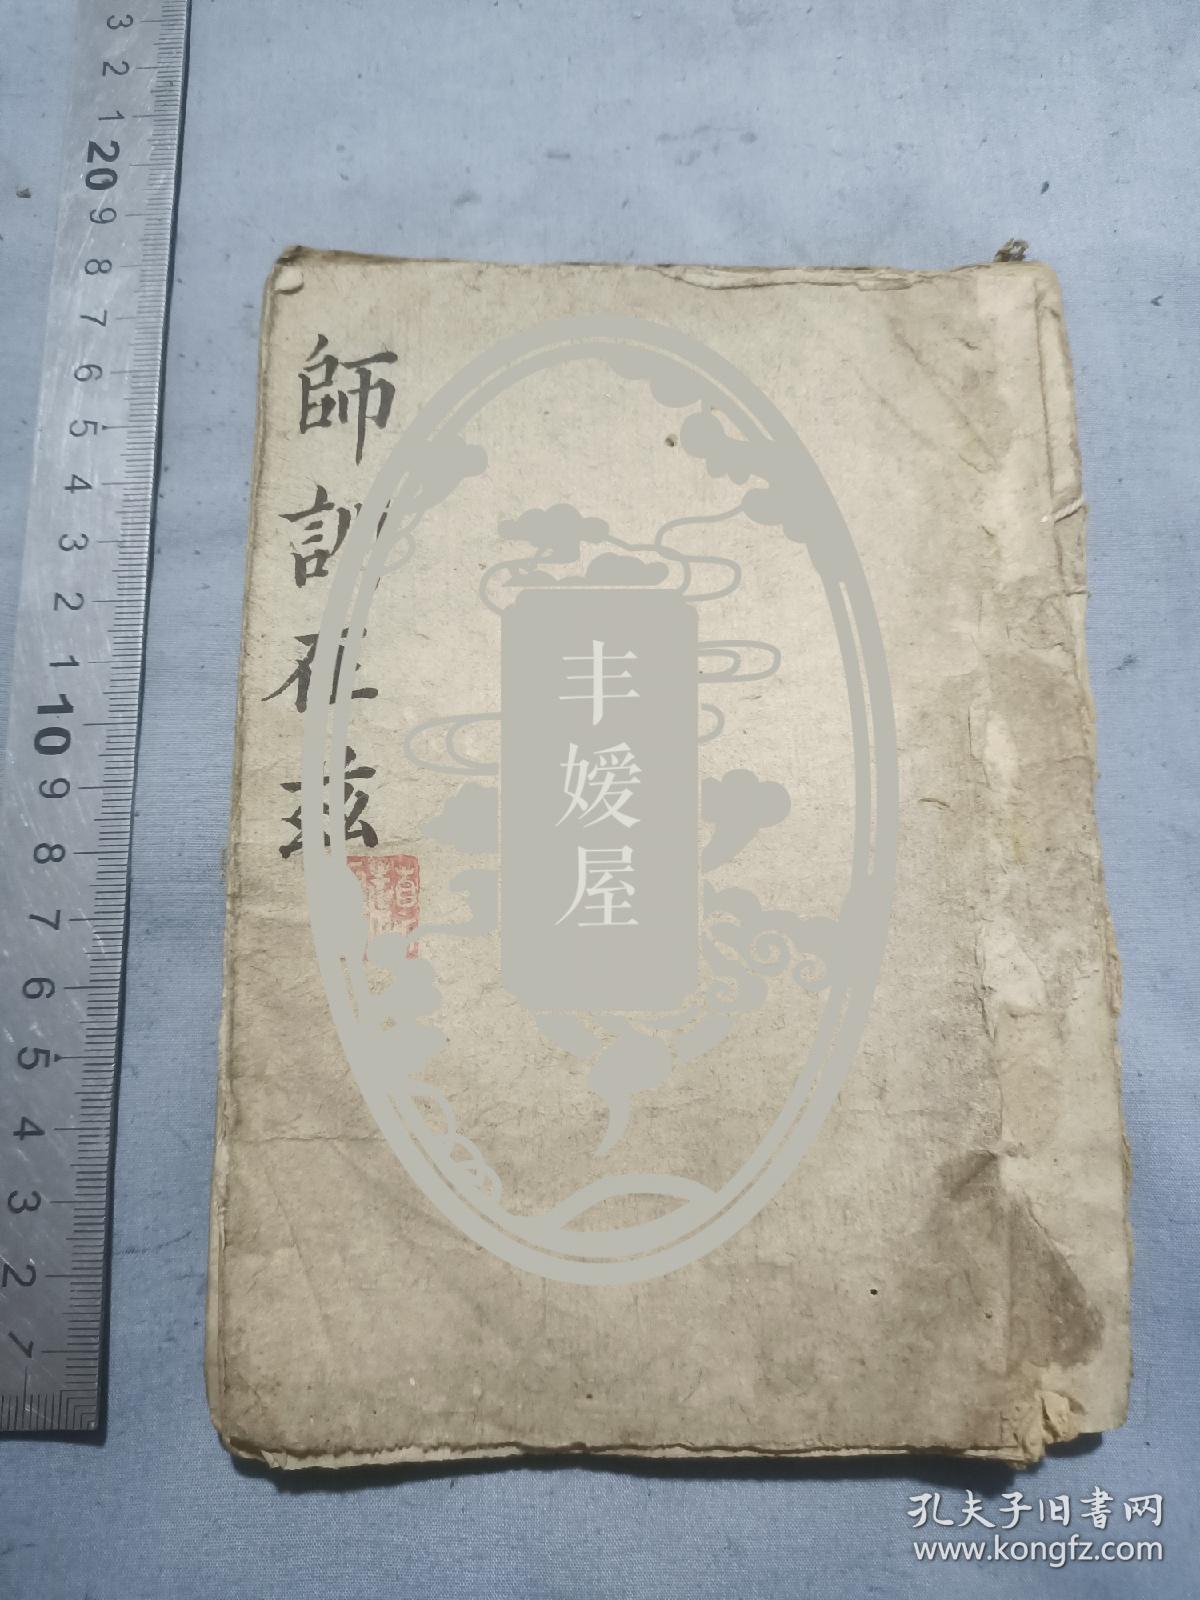 師訓在茲
丰嫒屋
孔夫子旧書网
www.kongfz.com
3
2
1
20
9
8
7
6
5
4
3
2
1
10
9
8
7
6
5
4
3
2
1